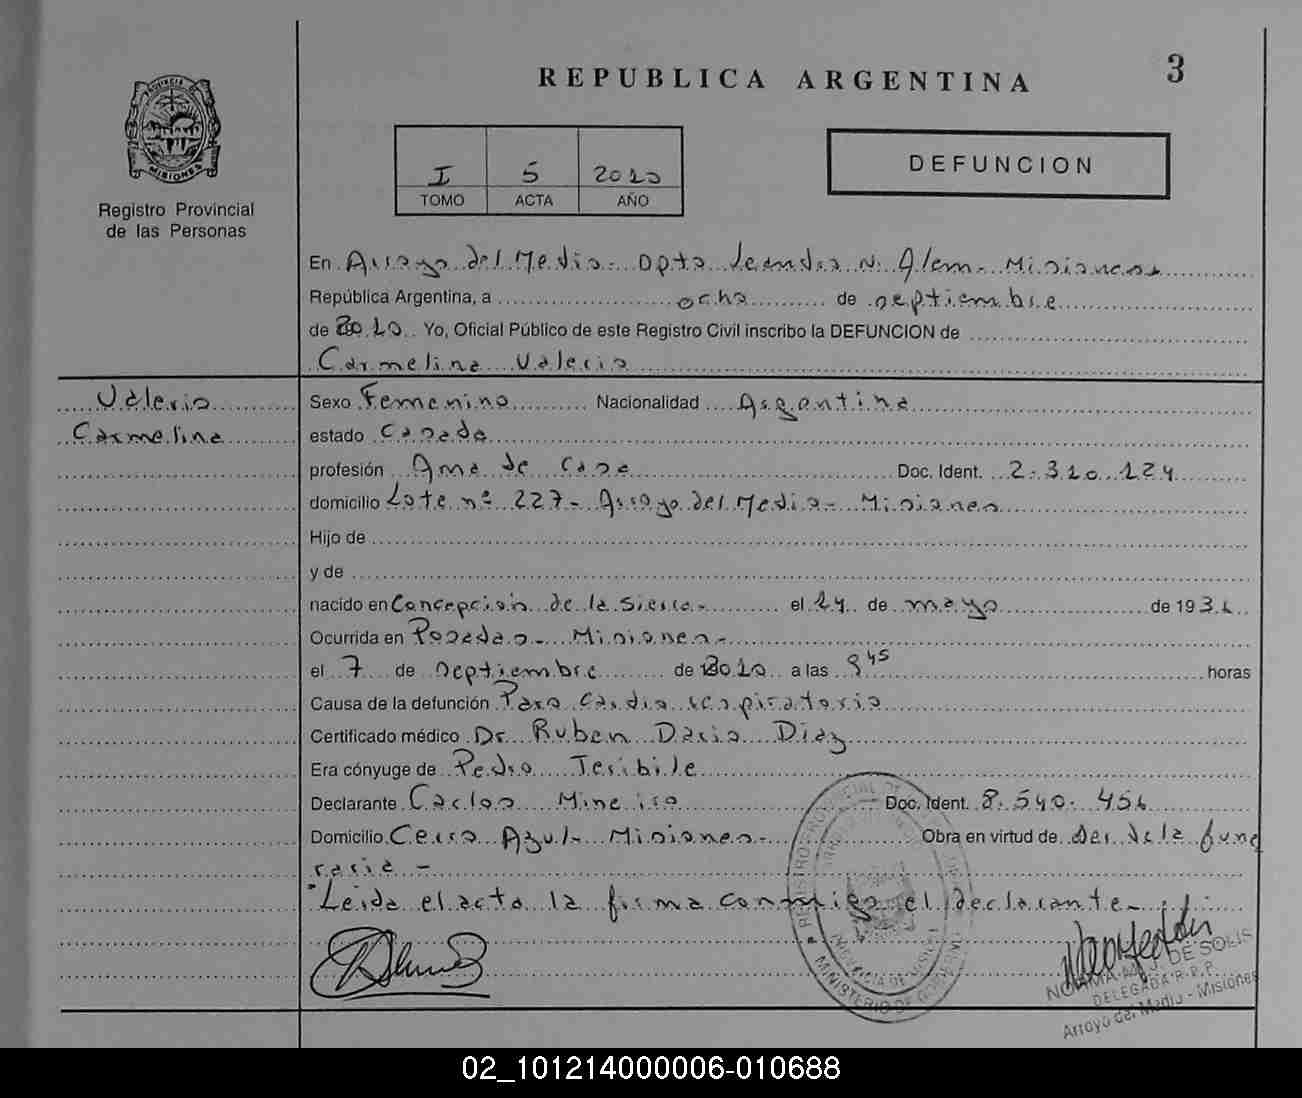 REPUBLICA ARGENTINA
3
PROVINCIA DE
MISIONES
Registro Provincial
de las Personas
I 5 2010
TOMO ACTA AÑO
DEFUNCION
En Arroyo del Medio - Dpto Leandro N. Alem - Misiones
República Argentina, a ocho de septiembre
de 2010 Yo, Oficial Público de este Registro Civil inscribo la DEFUNCION de
Carmelina Valerio
Valerio
Carmelina
Sexo Femenino Nacionalidad Argentina
estado Casada
profesión Ama de Casa Doc. Ident. 2.310.124
domicilio Lote nº 227 - Arroyo del Medio - Misiones
Hijo de
y de
nacido en Concepción de la Sierra - el 24 de mayo de 193
Ocurrida en Posadas - Misiones -
el 7 de septiembre de 2010 a las 9 45 horas
Causa de la defunción Paro Cardio respiratorio
Certificado médico Dr. Ruben Dario Diaz
Era cónyuge de Pedro Teribile
Declarante Carlos Mineiro Doc. Ident. 8.540.456
Domicilio Cerro Azul - Misiones - Obra en virtud de ser de la fune
raria -
Leida el acta la firma conmigo el declarante -
REGISTRO PROVINCIAL DE
PROVINCIA DE MISIONES
MINISTERIO DE GOBIERNO
NORMA M. J. DE SOLIS
DELEGADA R.P.P.
Arroyo del Medio - Misiones
02_101214000006-010688